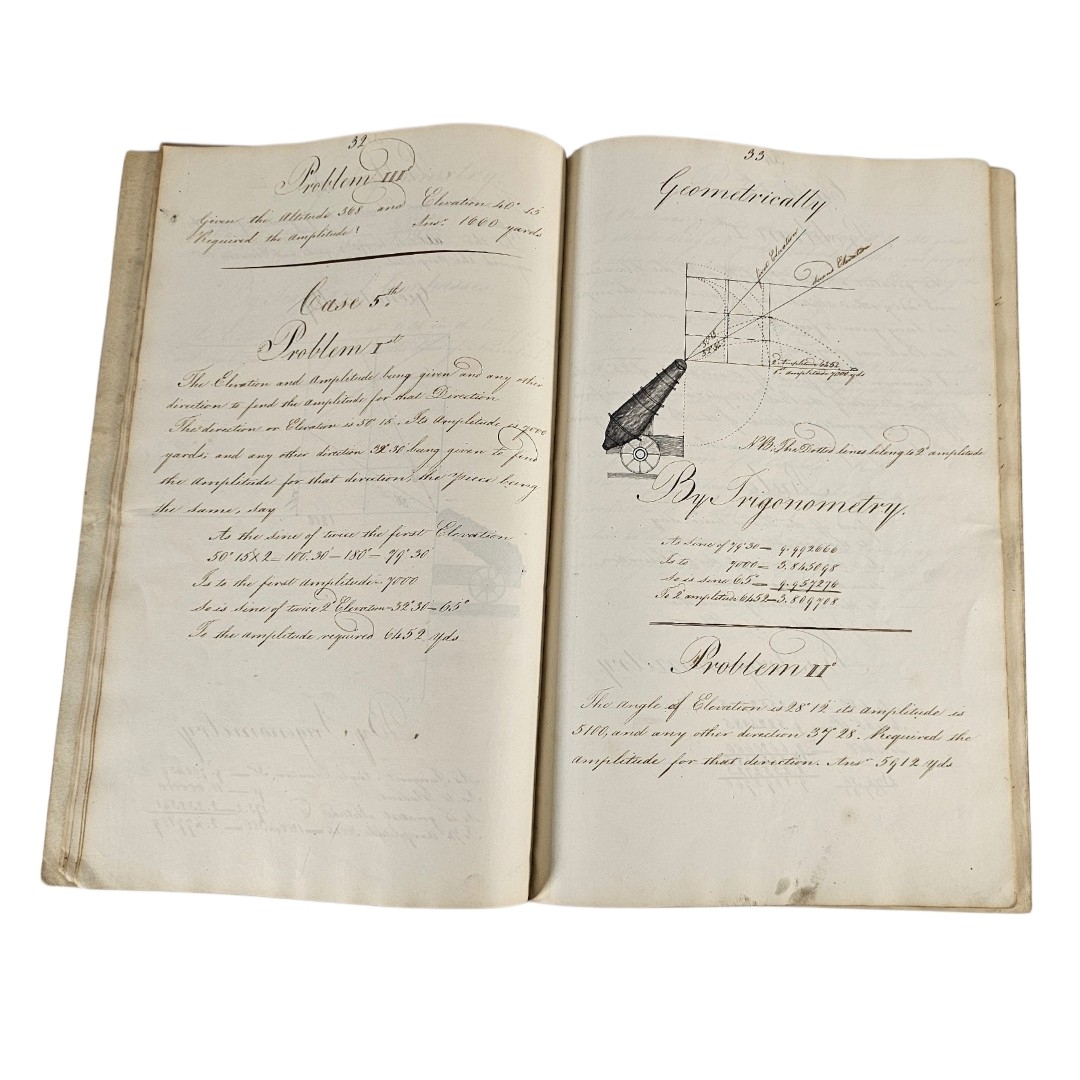 32
Problem III
Given the Altitude 368 and Elevation 40° 15
Required the Amplitude? Ansr 1660 yards
Case 5th
Problem Ist
The Elevation and Amplitude being given and any other
direction to find the Amplitude for that Direction
The direction or Elevation is 50° 15. Its Amplitude is 7000
yards; and any other direction 32° 30 being given to find
the Amplitude for that direction, the piece being
the same, say
As the sine of twice the first Elevation
50° 15 X 2 = 100° 30 – 180° = 79° 30
Is to the first amplitude = 7000
So is sine of twice 2d Elevation = 32° 30 = 65°
To the amplitude required 6452 yds
33
Geometrically
first Elevation
second Elevation
50° 15
32° 30
2d Amplitude 6452
1st amplitude 7000 yds
NB. The Dotted lines belong to 2d amplitude
By Trigonometry.
As Sine of 79° 30 = 9.992666
Is to 7000 = 3.845098
So is sine 65° = 9.957276
To 2d amplitude 6452 = 3.809708
Problem IId
The angle of Elevation is 28° 12 its amplitude is
5100, and any other direction 37° 28. Required the
amplitude for that direction. Ansr 5912 yds